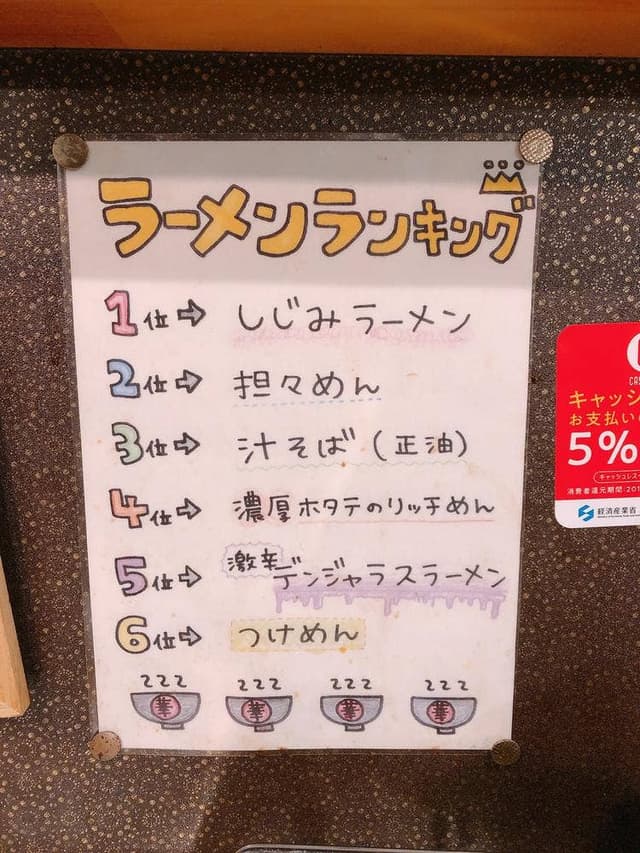 ラーメンランキング
1位⇨ しじみラーメン
2位⇨ 担々めん
3位⇨ 汁そば(正油)
4位⇨ 濃厚ホタテのリッチめん
5位⇨ 激辛デンジャラスラーメン
6位⇨ つけめん
華 華 華 華
キャッシ
お支払い
5%
消費者還元期間:201
経済産業省